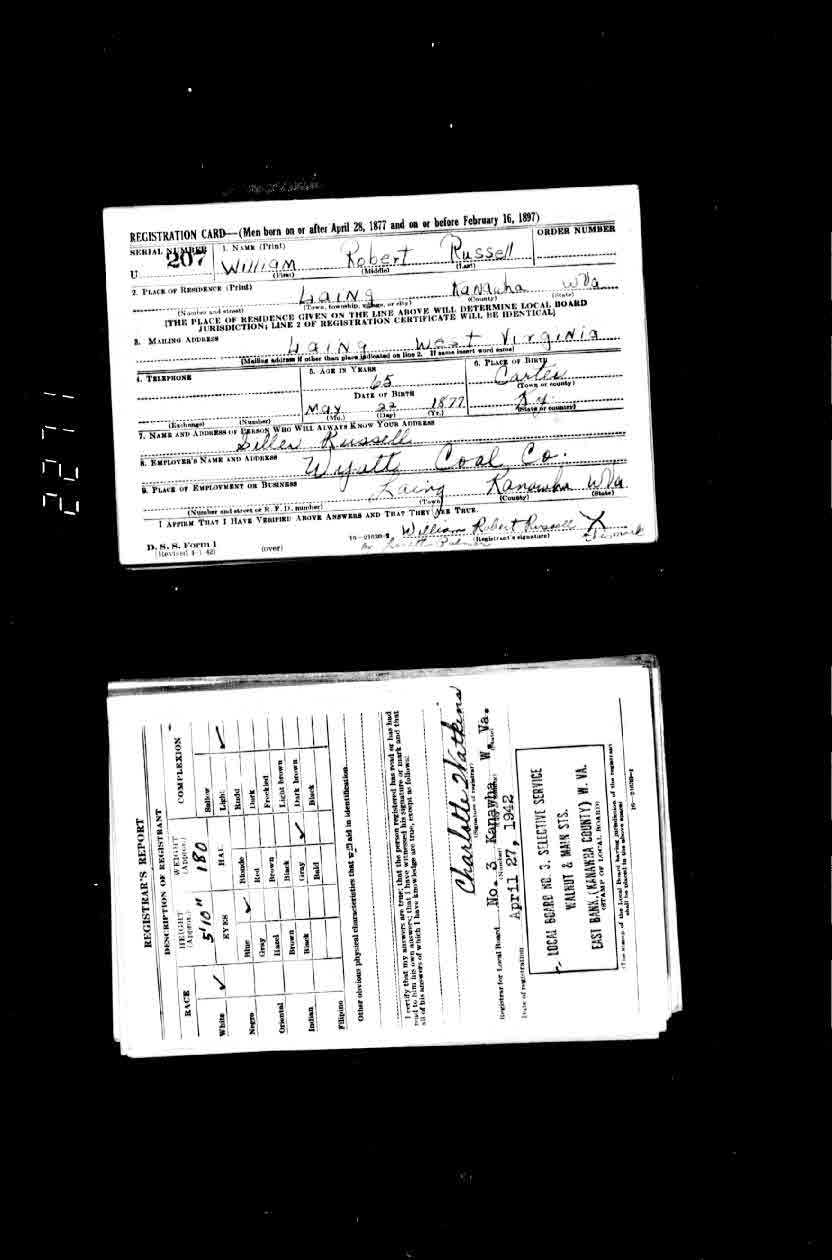 REGISTRATION CARD—(Men born on or after April 28, 1877 and on or before February 16, 1897)
SERIAL NUMBER 1. NAME (Print) ORDER NUMBER
U 207 William Robert Russell
(First) (Middle) (Last)
2. PLACE OF RESIDENCE (Print)
Laing Kanawha WVa
(Number and street) (Town, township, village, or city) (County) (State)
[THE PLACE OF RESIDENCE GIVEN ON THE LINE ABOVE WILL DETERMINE LOCAL BOARD
JURISDICTION; LINE 2 OF REGISTRATION CERTIFICATE WILL BE IDENTICAL]
3. MAILING ADDRESS
Laing West Virginia
[Mailing address if other than place indicated on line 2. If same insert word same]
4. TELEPHONE 5. AGE IN YEARS 6. PLACE OF BIRTH
65 Carter
DATE OF BIRTH (Town or county)
May 22 1877 Ky
(Exchange) (Number) (Mo.) (Day) (Yr.) (State or country)
7. NAME AND ADDRESS OF PERSON WHO WILL ALWAYS KNOW YOUR ADDRESS
Russell
8. EMPLOYER'S NAME AND ADDRESS
Wyatt Coal Co.
9. PLACE OF EMPLOYMENT OR BUSINESS
Laing Kanawha WVa
(Number and street or R. F. D. number) (Town) (County) (State)
I AFFIRM THAT I HAVE VERIFIED ABOVE ANSWERS AND THAT THEY ARE TRUE.
William Robert Russell X
D. S. S. Form 1 16—21630-2 (Registrant's signature)
(Revised 4-1-42) (over)
2271
REGISTRAR'S REPORT
DESCRIPTION OF REGISTRANT
RACE HEIGHT (Approx.) WEIGHT (Approx.) COMPLEXION
5'10" 180 Sallow
White ✓ EYES HAIR Light ✓
Blue ✓ Blonde Ruddy
Negro Gray Red Dark
Hazel Brown Freckled
Oriental Brown Black Light brown
Black Gray ✓ Dark brown
Indian Bald Black
Filipino
Other obvious physical characteristics that will aid in identification
I certify that my answers are true; that the person registered has read or has had
read to him his own answers; that I have witnessed his signature or mark and that
all of his answers of which I have knowledge are true, except as follows:
Charlotte Watkins
(Signature of registrar)
Registrar for Local Board No. 3 Kanawha W. Va.
(Number) (State)
Date of registration April 27, 1942
LOCAL BOARD NO. 3, SELECTIVE SERVICE
WALNUT & MAIN STS.
EAST BANK, (KANAWHA COUNTY) W. VA.
(STAMP OF LOCAL BOARD)
(The stamp of the Local Board having jurisdiction of the registrant
shall be placed in the above space)
16—21630-1